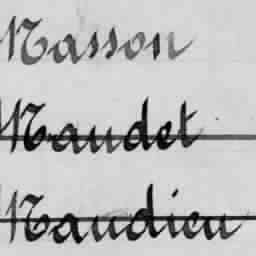 Masson
Maudet
Maudieu